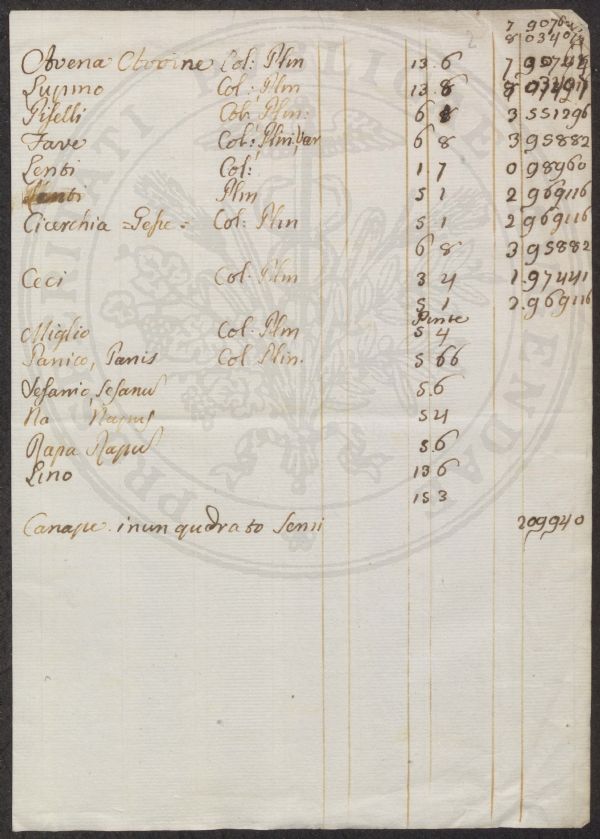 7 9076
2 8 0340
Avena Col: Plin 13 6 7
Lupino Col: Plin 13 8 8
Piselli Col: Plin: 6 8 3 551296
Fave Col: Plin: Var 6 8 3 95882
Lenti Col: 1 7 0 98960
Lenti Plin 5 1 2 969116
Cicerchia Col: Plin 5 1 2 969116
6 8 3 95882
Ceci Col: Plin 3 4 1. 97441
5 1 2. 969116
Pinte
Miglio Col: Plin 5 4
Panico, Panis Col Plin. 5 66
5 6
Na Napus 5 4
Rapa 5 6
Lino 13 6
15 3
Canape in un quadrato Semi 209940
PRIVATI PUBLICE PRAEBENDA